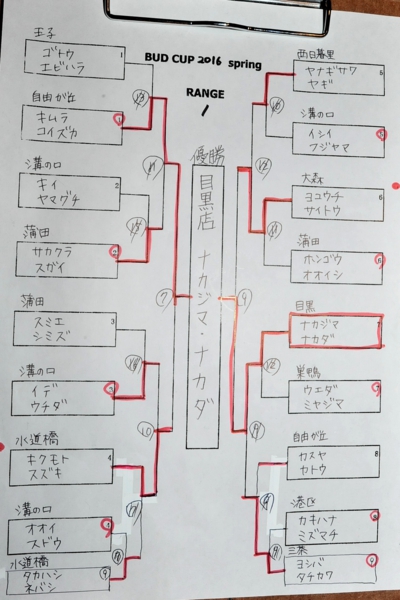 BUD CUP 2016 spring
RANGE
1
優勝
目黒店 ナカジマ・ナカダ
王子
ゴトウ
エビハラ
1
自由が丘
キムラ
コイズカ
溝の口
キイ
ヤマグチ
2
蒲田
サカクラ
スガイ
蒲田
スミエ
シミズ
3
溝の口
イデ
ウチダ
水道橋
キクモト
スズキ
4
溝の口
オオイ
スドウ
水道橋
タカハシ
ネバシ
9
7
10
西日暮里
ヤナギサワ
ヤギ
5
溝の口
イシイ
フジヤマ
大森
ヨコウチ
サイトウ
6
蒲田
ホンゴウ
オオイシ
目黒
ナカジマ
ナカダ
7
巣鴨
ウエダ
ミヤジマ
自由が丘
カスヤ
カトウ
8
港区
カキハナ
ミズマチ
三茶
ヨシバ
タチカワ
9